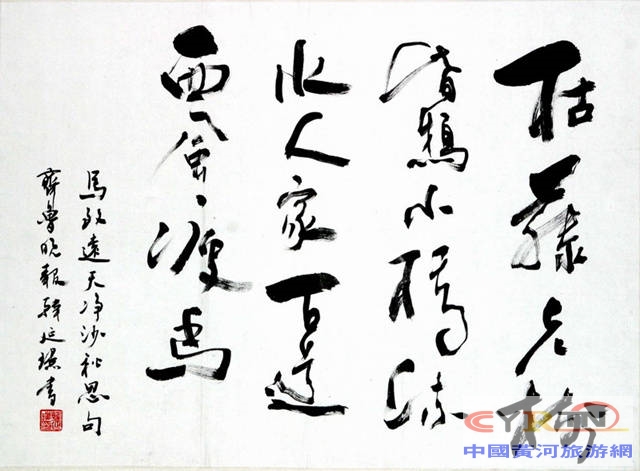 枯藤老树
昏鴉小橋流
水人家古道
西風瘦馬
馬致遠天净沙秋思句
齊魯晚報韓延書
中國黃河旅游網